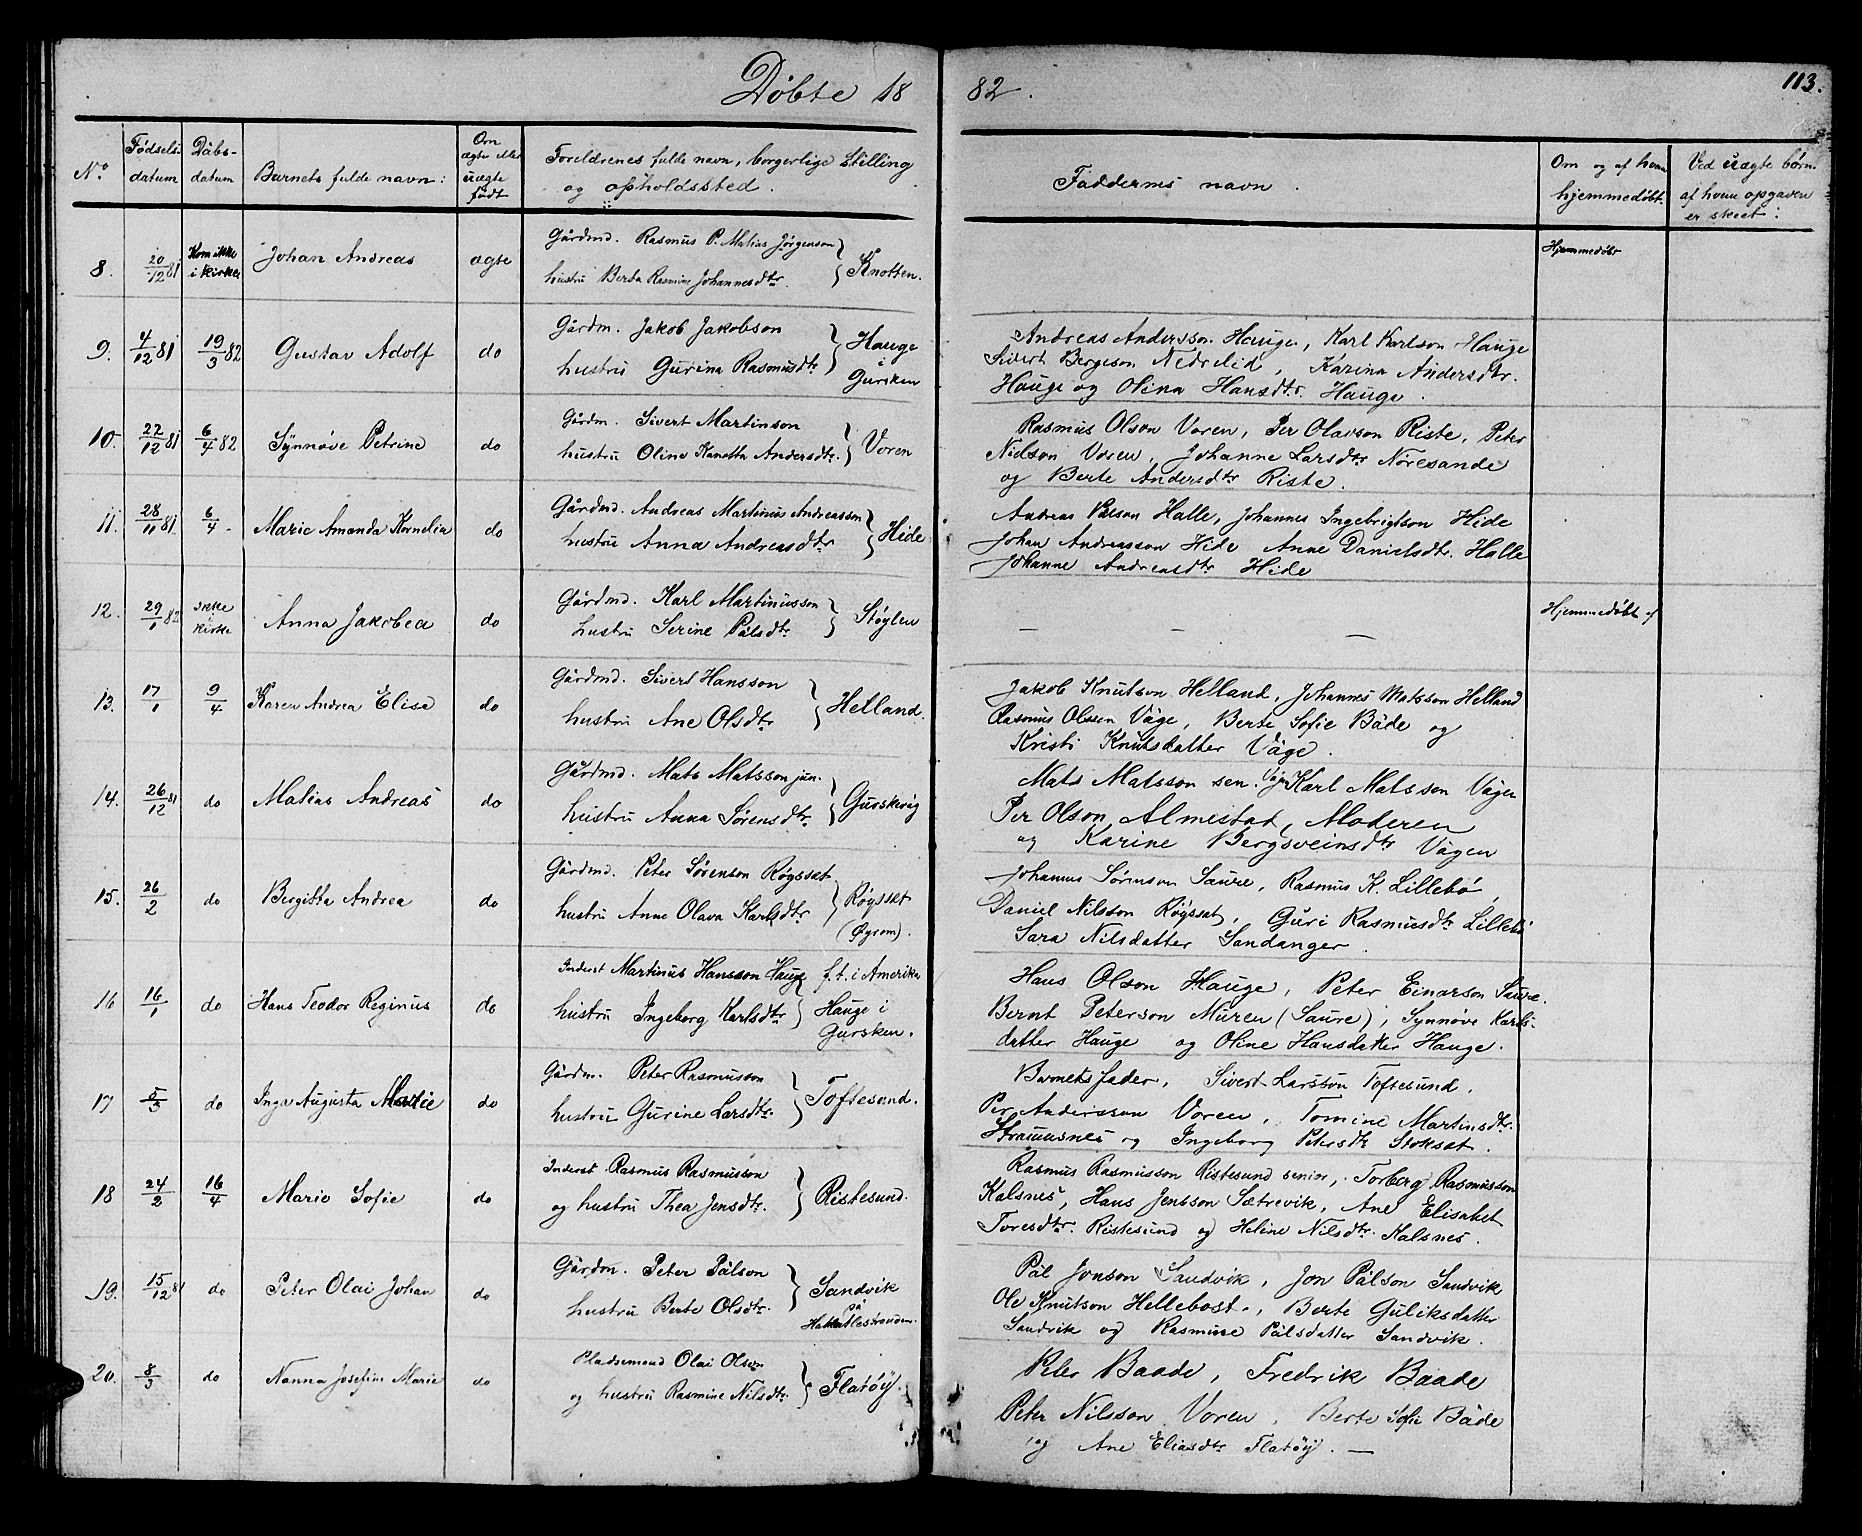 Döbte 18 82.
113.
No.
Fødsels-
datum
Dåbs-
datum
Barnets fulde navn:
Om
ægte eller
uægte
født
Foreldrenes fulde navn, borgerlige stilling
og opholdssted.
Faddernes navn.
Om og af hvem
hjemmedøbt.
Ved uægte børn
af hvem opgaven
er skeet:
8. 20/12 81 Kom ikke i kirke Johan Andreas ægte Gårdmd. Rasmus P. Matias Jørgenson
hustru Berta Rasmine Johannesdtr. } Knotten.
Hjemmedøbt
9. 4/12 81 19/3 82 Gustav Adolf do Gårdm. Jakob Jakobson
hustru Gurina Rasmusdtr } Hauge i Gursken
Andreas Andersson Hauge, Karl Karlson Hauge
Sivert Bergeson Nedrelid, Karina Andersdtr.
Hauge og Olina Hansdtr. Hauge.
10. 22/12 81 6/4 82 Synnøve Petrine do Gårdm. Sivert Martinson
hustru Oline Kanetta Andersdtr. } Voren
Rasmus Olson Voren, Per Olavson Riste, Peter
Nielson Voren, Johanne Larsdtr Nøresande
og Berte Andersdtr Riste.
11. 28/11 81 6/4 - Marie Amanda Kornelia do Gårdmd. Andreas Martinus Andreassen
hustru Anna Andreasdtr } Hide
Andreas Pålson Halle, Johannes Ingebrigtson Hide
Johan Andreasson Hide Anne Danielsdtr. Halle
Johanne Andreasdtr Hide
12. 29/1 82 ikke i kirke Anna Jakobea do Gårdmd. Karl Martinusson
hustru Serine Pålsdtr } Støylen
— — —
Hjemmedøbt af
13. 17/1 9/4 Karen Andrea Elise do Gårdmd. Sivert Hansson
hustru Ane Olsdtr } Helland.
Jakob Knutson Helland, Johannes Matsson Helland
Rasmus Olssen Våge, Berte Sofie Både og
Kristi Knutsdatter Våge.
14. 26/12 81 do Matias Andreas do Gårdmd. Mats Matsson jun.
hustru Anna Sørensdtr. } Gurskevåg
Mats Matsson sen. Vågen Karl Matsson Vågen
Per Olson Almestad, Moderen
og Karine Bergsveinsdtr Vågen
15. 26/2 do Bergitta Andrea do Gårdmd. Peter Sørenson Røysset
hustru Anne Olava Karlsdtr } Røysset
(Øyrom).
Johannes Sørenson Saure, Rasmus K. Lillebø,
Daniel Nilsson Røysset, Guri Rasmusdtr Lillebø
Sara Nilsdatter Sandanger.
16 16/1 do Hans Teodor Reginus do Inderst Martinus Hansson Hauge f.t. i Amerika
hustru Ingeborg Karlsdtr } Hauge i
Gursken.
Hans Olson Hauge, Peter Einarson Saure.
Bernt Peterson Muren (Saure), Synnøve Karls-
datter Hauge og Oline Hansdatter Hauge.
17 5/3 do Inga Augusta Marie do Gårdm. Peter Rasmusson
hustru Gurine Larsdtr. } Toftesund.
Barnets fader, Sivert Larsson Toftesund,
Per Andersson Voren, Tomine Martinsdtr.
Straumsnes og Ingeborg Petersdtr Stokset.
18 24/2 16/4 Marie Sofie do Inderst Rasmus Rasmusson
og hustru Thea Jensdtr. } Ristesund.
Rasmus Rasmusson Ristesund senior, Torberg Rasmusson
Kalsnes, Hans Jensson Sætrevik, Ane Elisabet
Toresdtr. Ristesund og Heline Nilsdtr. Kalsnes.
19. 15/12 81 do Peter Olai Johan do Gårdm. Peter Pålson
hustru Berte Olsdtr. } Sandvik
på
Pål Jonson Sandvik, Jon Pålson Sandvik
Ole Knutson Hellebost, Berte Guliksdatter
Sandvik og Rasmine Pålsdatter Sandvik.
20. 8/3 do Nanna Josefine Marie do Pladsemand Olai Olson
og hustru Rasmine Nilsdtr. } Flatøy.
Peter Baade, Fredrik Baade
Peter Nilsson Voren, Berte Sofie Både
og Ane Eliasdtr Flatøy. —